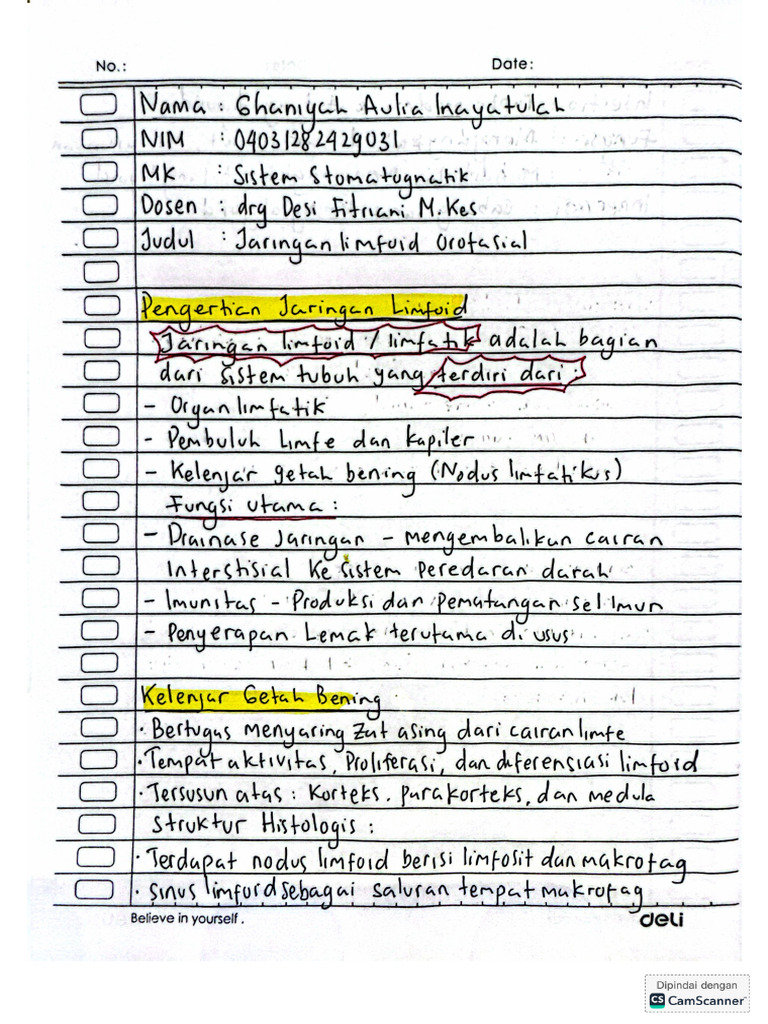 No.:
Date:
Nama : Ghaniyah Aulia Inayatulah
NIM : 04031282429031
MK : Sistem Stomatognatik
Dosen : drg Desi Fitriani M.Kes
Judul : Jaringan limfoid Orofasial
Pengertian Jaringan Limfoid
Jaringan limfoid / limfatik adalah bagian
dari sistem tubuh yang terdiri dari :
- Organ limfatik
- Pembuluh Limfe dan kapiler
- Kelenjar getah bening (Nodus limfatikus)
Fungsi utama :
- Drainase Jaringan - mengembalikan cairan
Interstisial Ke sistem peredaran darah
- Imunitas - Produksi dan Pematangan sel Imun
- Penyerapan Lemak terutama di usus
Kelenjar Getah Bening
· Bertugas menyaring Zat asing dari cairan limfe
· Tempat aktivitas, Proliferasi, dan diferensiasi limfoid
· Tersusun atas : Korteks, parakorteks, dan medula
Struktur Histologis :
· Terdapat nodus limfoid berisi limfosit dan makrofag
· Sinus limfoid sebagai saluran tempat makrofag
Believe in yourself.
deli
Dipindai dengan
CS CamScanner